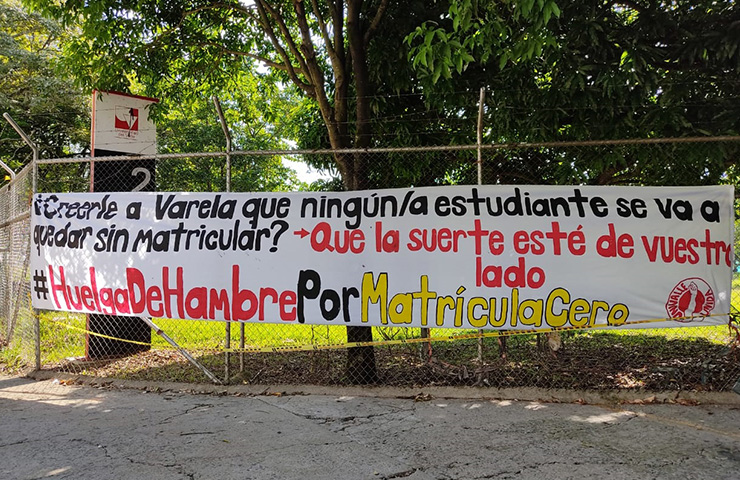 ¿Creerle a Varela que ningún/a estudiante se va a
quedar sin matricular? → Que la suerte esté de vuestro
lado
#HuelgaDeHambrePorMatrículaCero
2